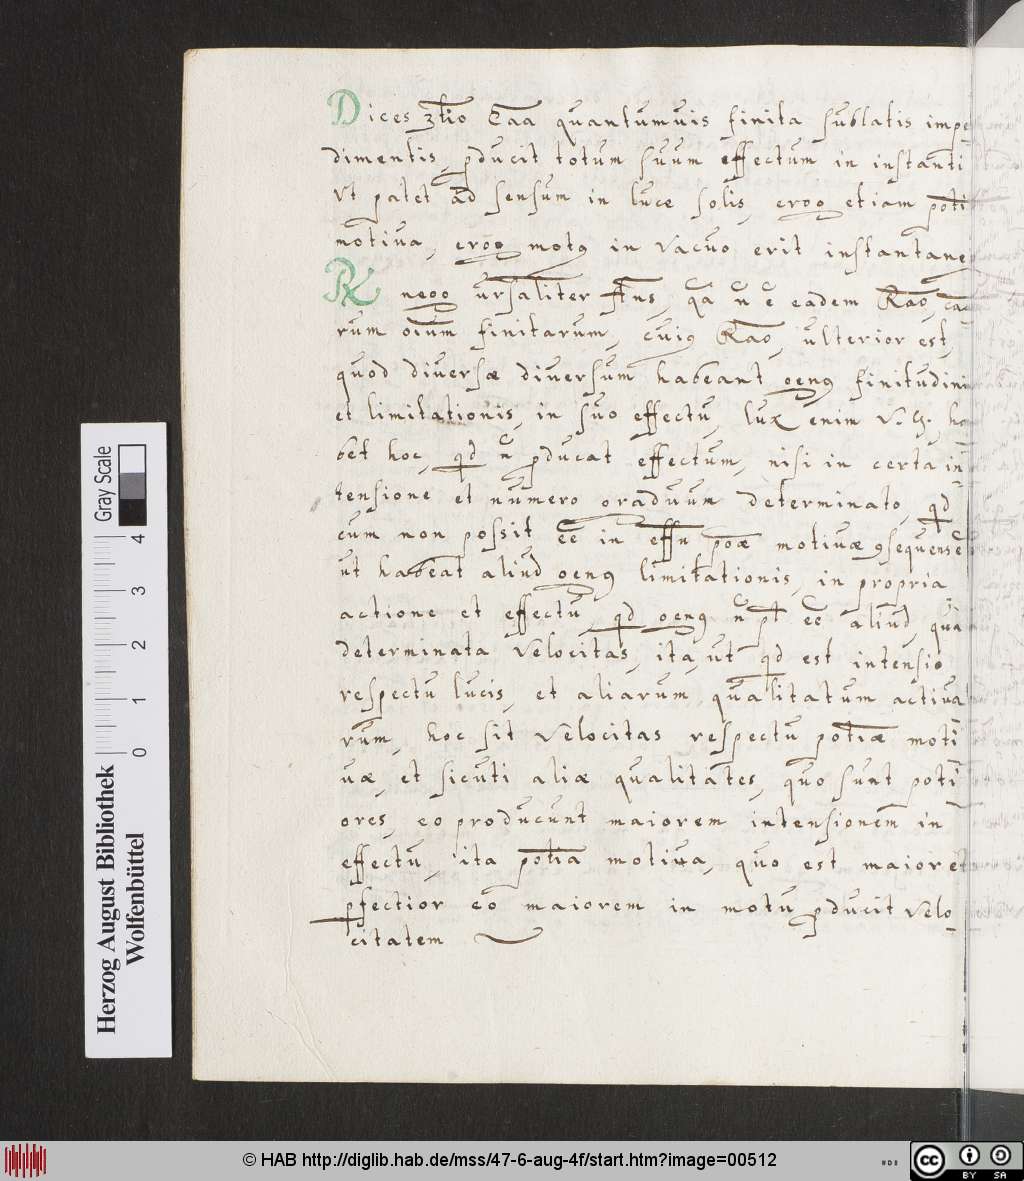 Dices 3tio Caa quantumuis finita sublatis impe-
dimentis, pducit totum suum effectum in instanti
Vt patet ad sensum in luce solis, ergo etiam poti
motiua, ergo motq in vacuo erit instantane
Rx nego ursaliter Ans, qa n e eadem Rao, cau
rum oium finitarum, cuiq Rao, ulterior est,
quod diuersæ diuersum habeant genq finitudini
et limitationis, in suo effectu, lux enim V.G. ha
bet hoc, qd n pducat effectum, nisi in certa in-
tensione et numero graduum determinato, qd
cum non possit ee in effu poæ motiuæ 9sequens e
ut habeat aliud genq limitationis, in propria
actione et effectu, qd genq n pt ee aliud, qua
determinata Velocitas, ita, ut qd est intensio
respectu lucis, et aliarum qualitatum actiua
rum, hoc sit Velocitas respectu potiæ moti
uæ, et sicuti aliæ qualitates, quo sunt poti
ores, eo producunt maiorem intensionem in
effectu, ita potia motiua, quo est maior et
pfectior eo maiorem in motu pducit Velo-
citatem
Gray Scale
0 1 2 3 4
Herzog August Bibliothek
Wolfenbüttel
© HAB http://diglib.hab.de/mss/47-6-aug-4f/start.htm?image=00512
cc BY SA